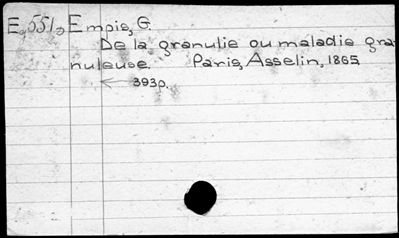 E,551, Empis, G.
De la granulie ou maladie gra-
nuleuse. Paris, Asselin, 1865
← 393p.